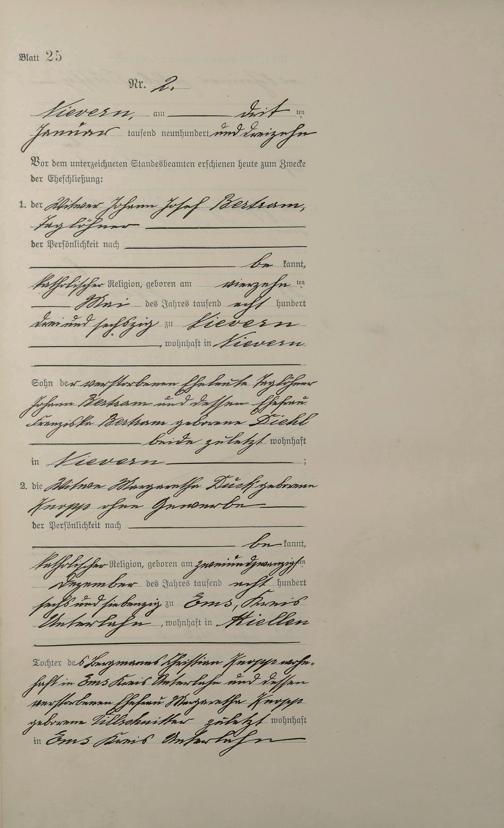 Blatt 25
Nr. 2.
Nievern, am drit ten
Januar tausend neunhundert und dreizehn
Vor dem unterzeichneten Standesbeamten erschienen heute zum Zwecke
der Eheschließung:
1. der Witwer Johann Josef Bertram,
Taglöhner
der Persönlichkeit nach
be kannt,
katholischer Religion, geboren am vierzehn ten
Mai des Jahres tausend acht hundert
drei und sechszig zu Nievern
, wohnhaft in Nievern
Sohn der verstorbenen Eheleute Taglöhner
Johann Bertram und dessen Ehefrau
Franziska Bertram geborene Diehl
beide zuletzt wohnhaft
in Nievern ;
2. die Witwe Margaretha geborene
Knopp ohne Gewerbe
der Persönlichkeit nach
be kannt,
katholischer Religion, geboren am zweiundzwanzigsten
Dezember des Jahres tausend acht hundert
sechs und siebenzig zu Ems, Kreis
Unterlahn, wohnhaft in Miellen
Tochter des Bergmanns Christian Knopp wohn-
haft in Ems Kreis Unterlahn und dessen
verstorbenen Ehefrau Margaretha Knopp
geborene zuletzt wohnhaft
in Ems Kreis Unterlahn